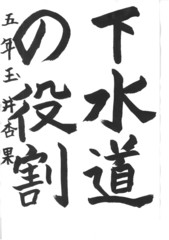 下水道
の役割
五年玉井杏果